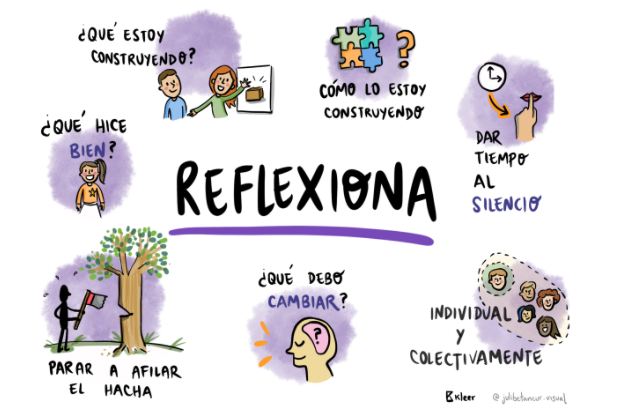 ¿QUÉ ESTOY
CONSTRUYENDO?
?
CÓMO LO ESTOY
CONSTRUYENDO
DAR
TIEMPO
AL
SILENCIO
¿QUÉ HICE
BIEN?
REFLEXIONA
PARAR A AFILAR
EL HACHA
¿QUÉ DEBO
CAMBIAR?
?
INDIVIDUAL
Y
COLECTIVAMENTE
Kleer @julibetancur.visual